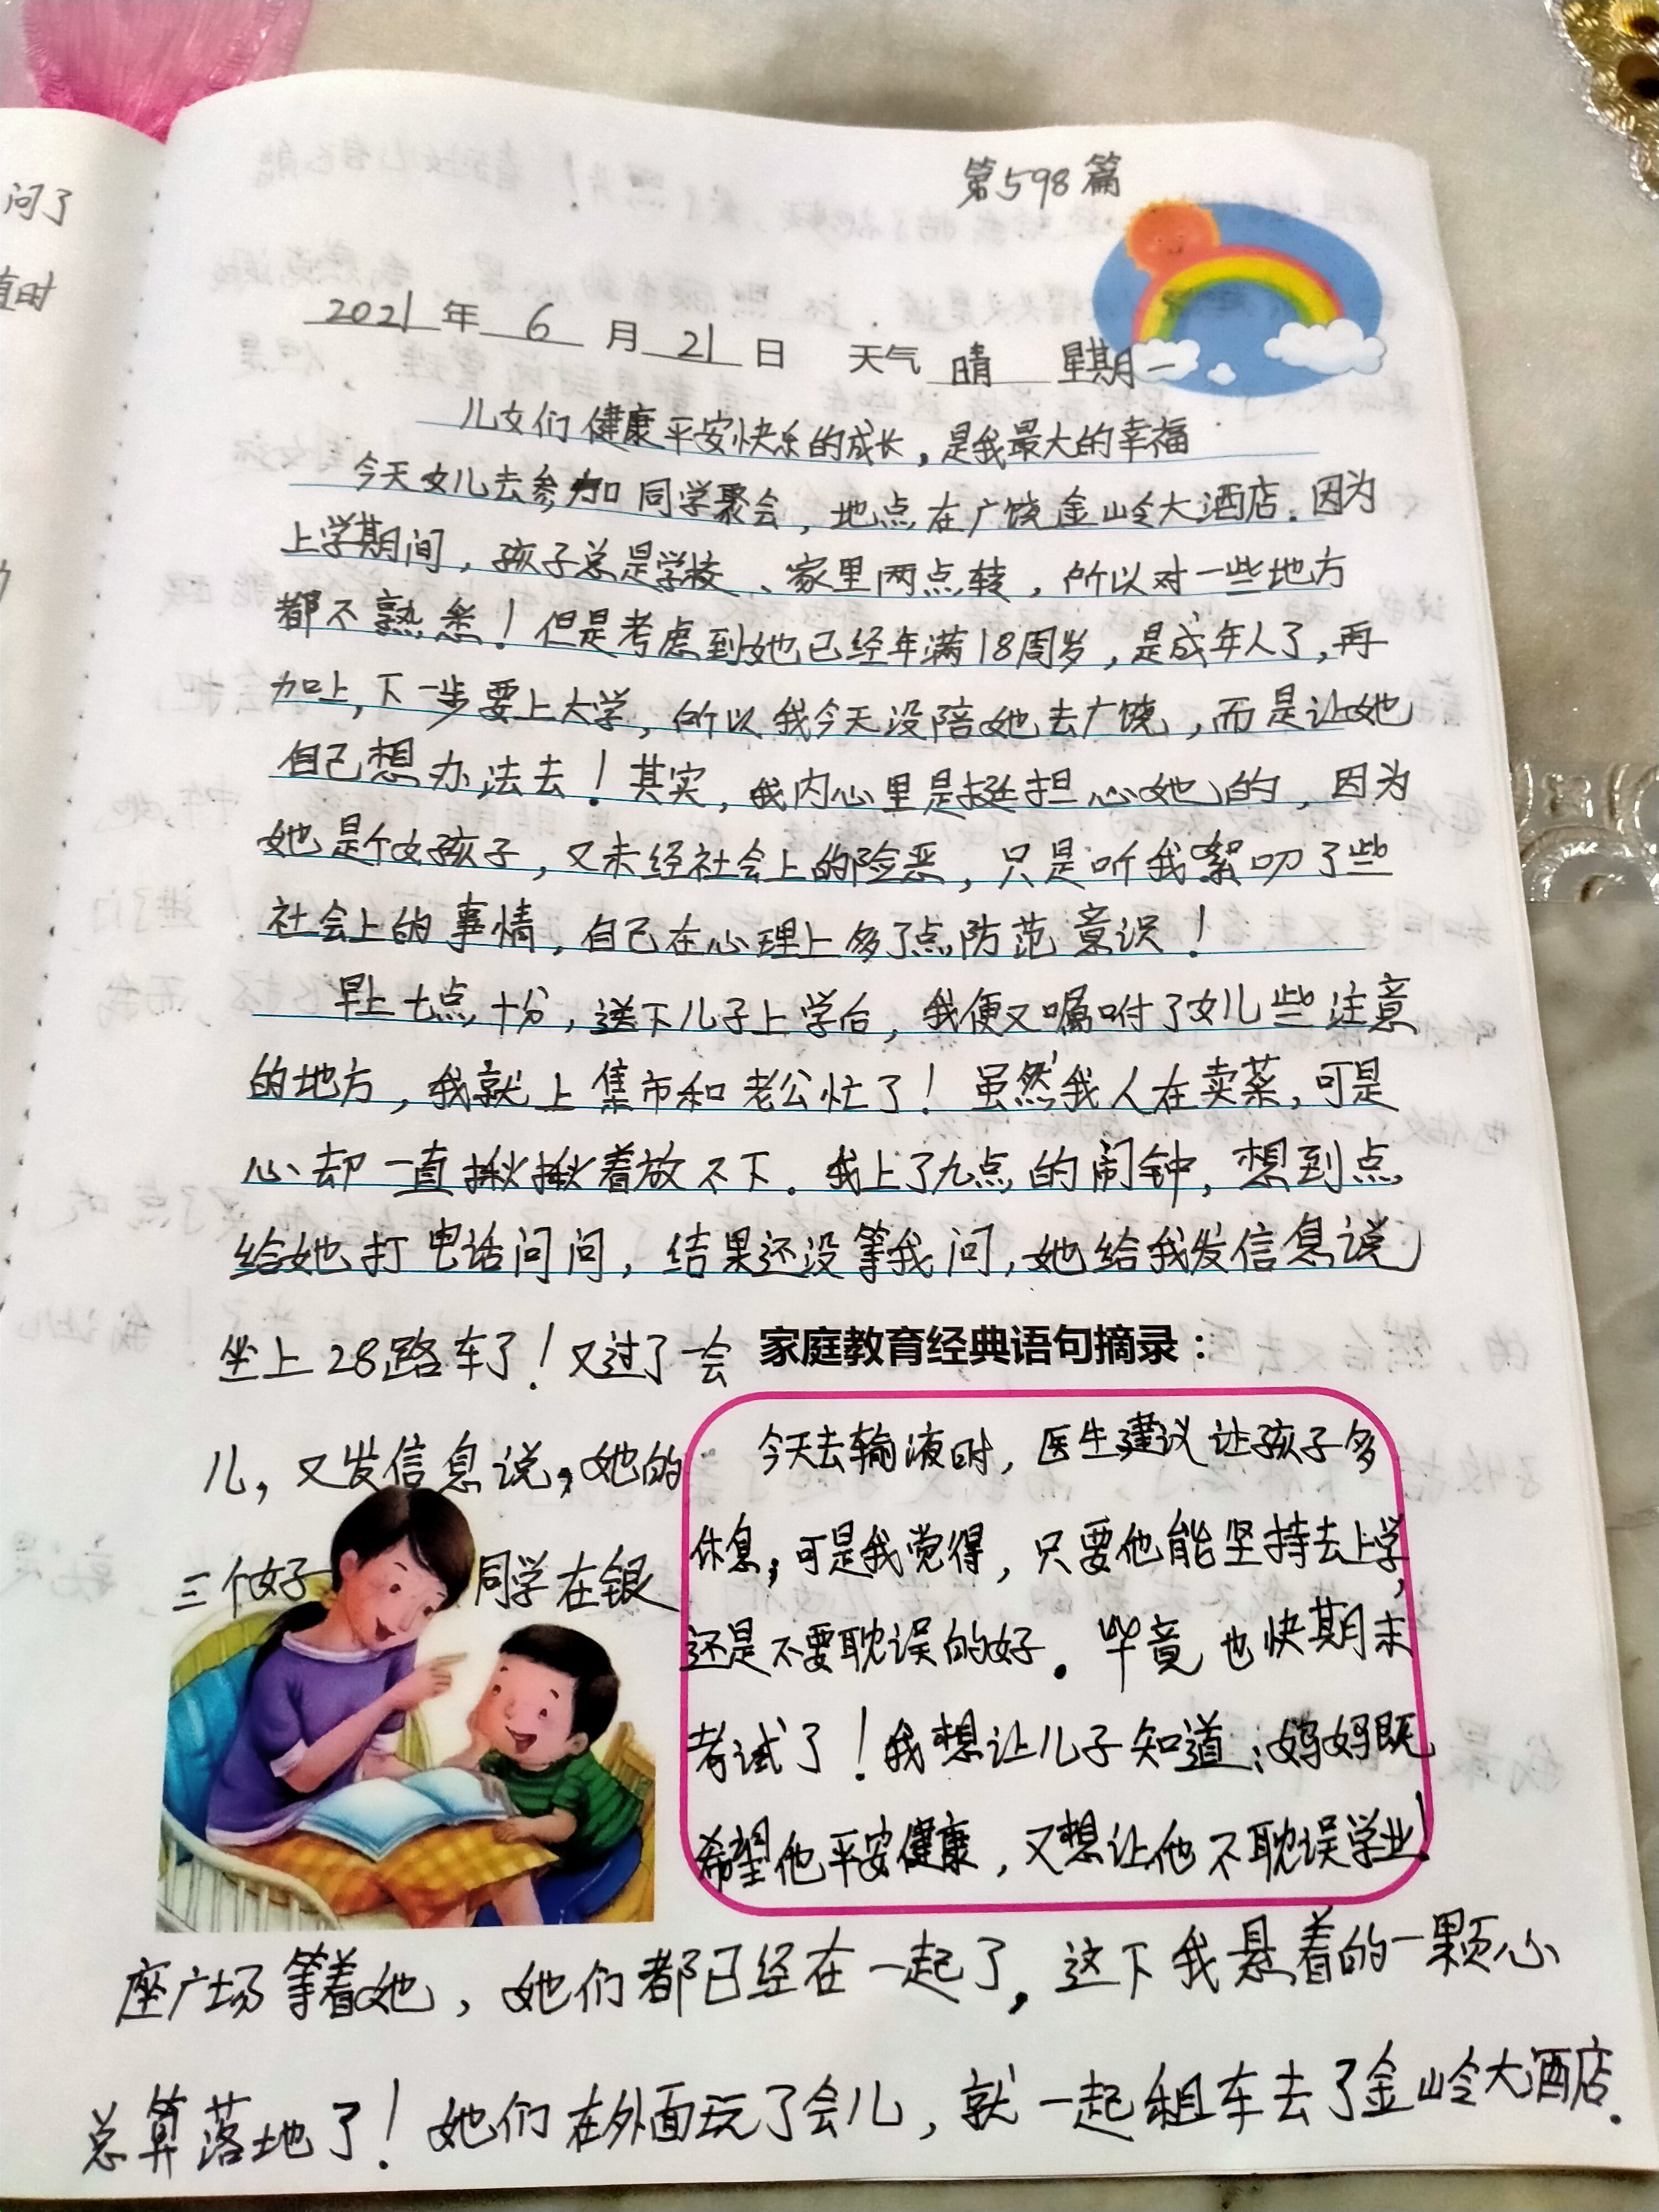 问了
直时
第598篇
2021年 6 月 21 日 天气 晴 星期一
儿女们健康平安快乐的成长，是我最大的幸福
今天女儿去参加同学聚会，地点在广饶金岭大酒店.因为
上学期间，孩子总是学校、家里两点转，所以对一些地方
都不熟悉！但是考虑到她已经年满18周岁，是成年人了，再
加上，下一步要上大学，所以我今天没陪她去广饶，而是让她
自己想办法去！其实，我内心里是挺担心她的，因为
她是个女孩子，又未经社会上的险恶，只是听我絮叨了些
社会上的事情，自己在心理上多了点防范意识！
早上七点十分，送下儿子上学后，我便又嘱咐了女儿些注意
的地方，我就上集市和老公忙了！虽然我人在卖菜，可是
心却一直揪揪着放不下。我上了九点的闹钟，想到点
给她打电话问问，结果还没等我问，她给我发信息说
坐上28路车了！又过了一会
儿，又发信息说，她的
三个好同学在银
家庭教育经典语句摘录：
今天去输液时，医生建议让孩子多
休息，可是我觉得，只要他能坚持去上学，
还是不要耽误的好。毕竟也快期末
考试了！我想让儿子知道：妈妈既
希望他平安健康，又想让他不耽误学业！
座广场等着她，她们都已经在一起了，这下我悬着的一颗心
总算落地了！她们在外面玩了会儿，就一起租车去了金岭大酒店.